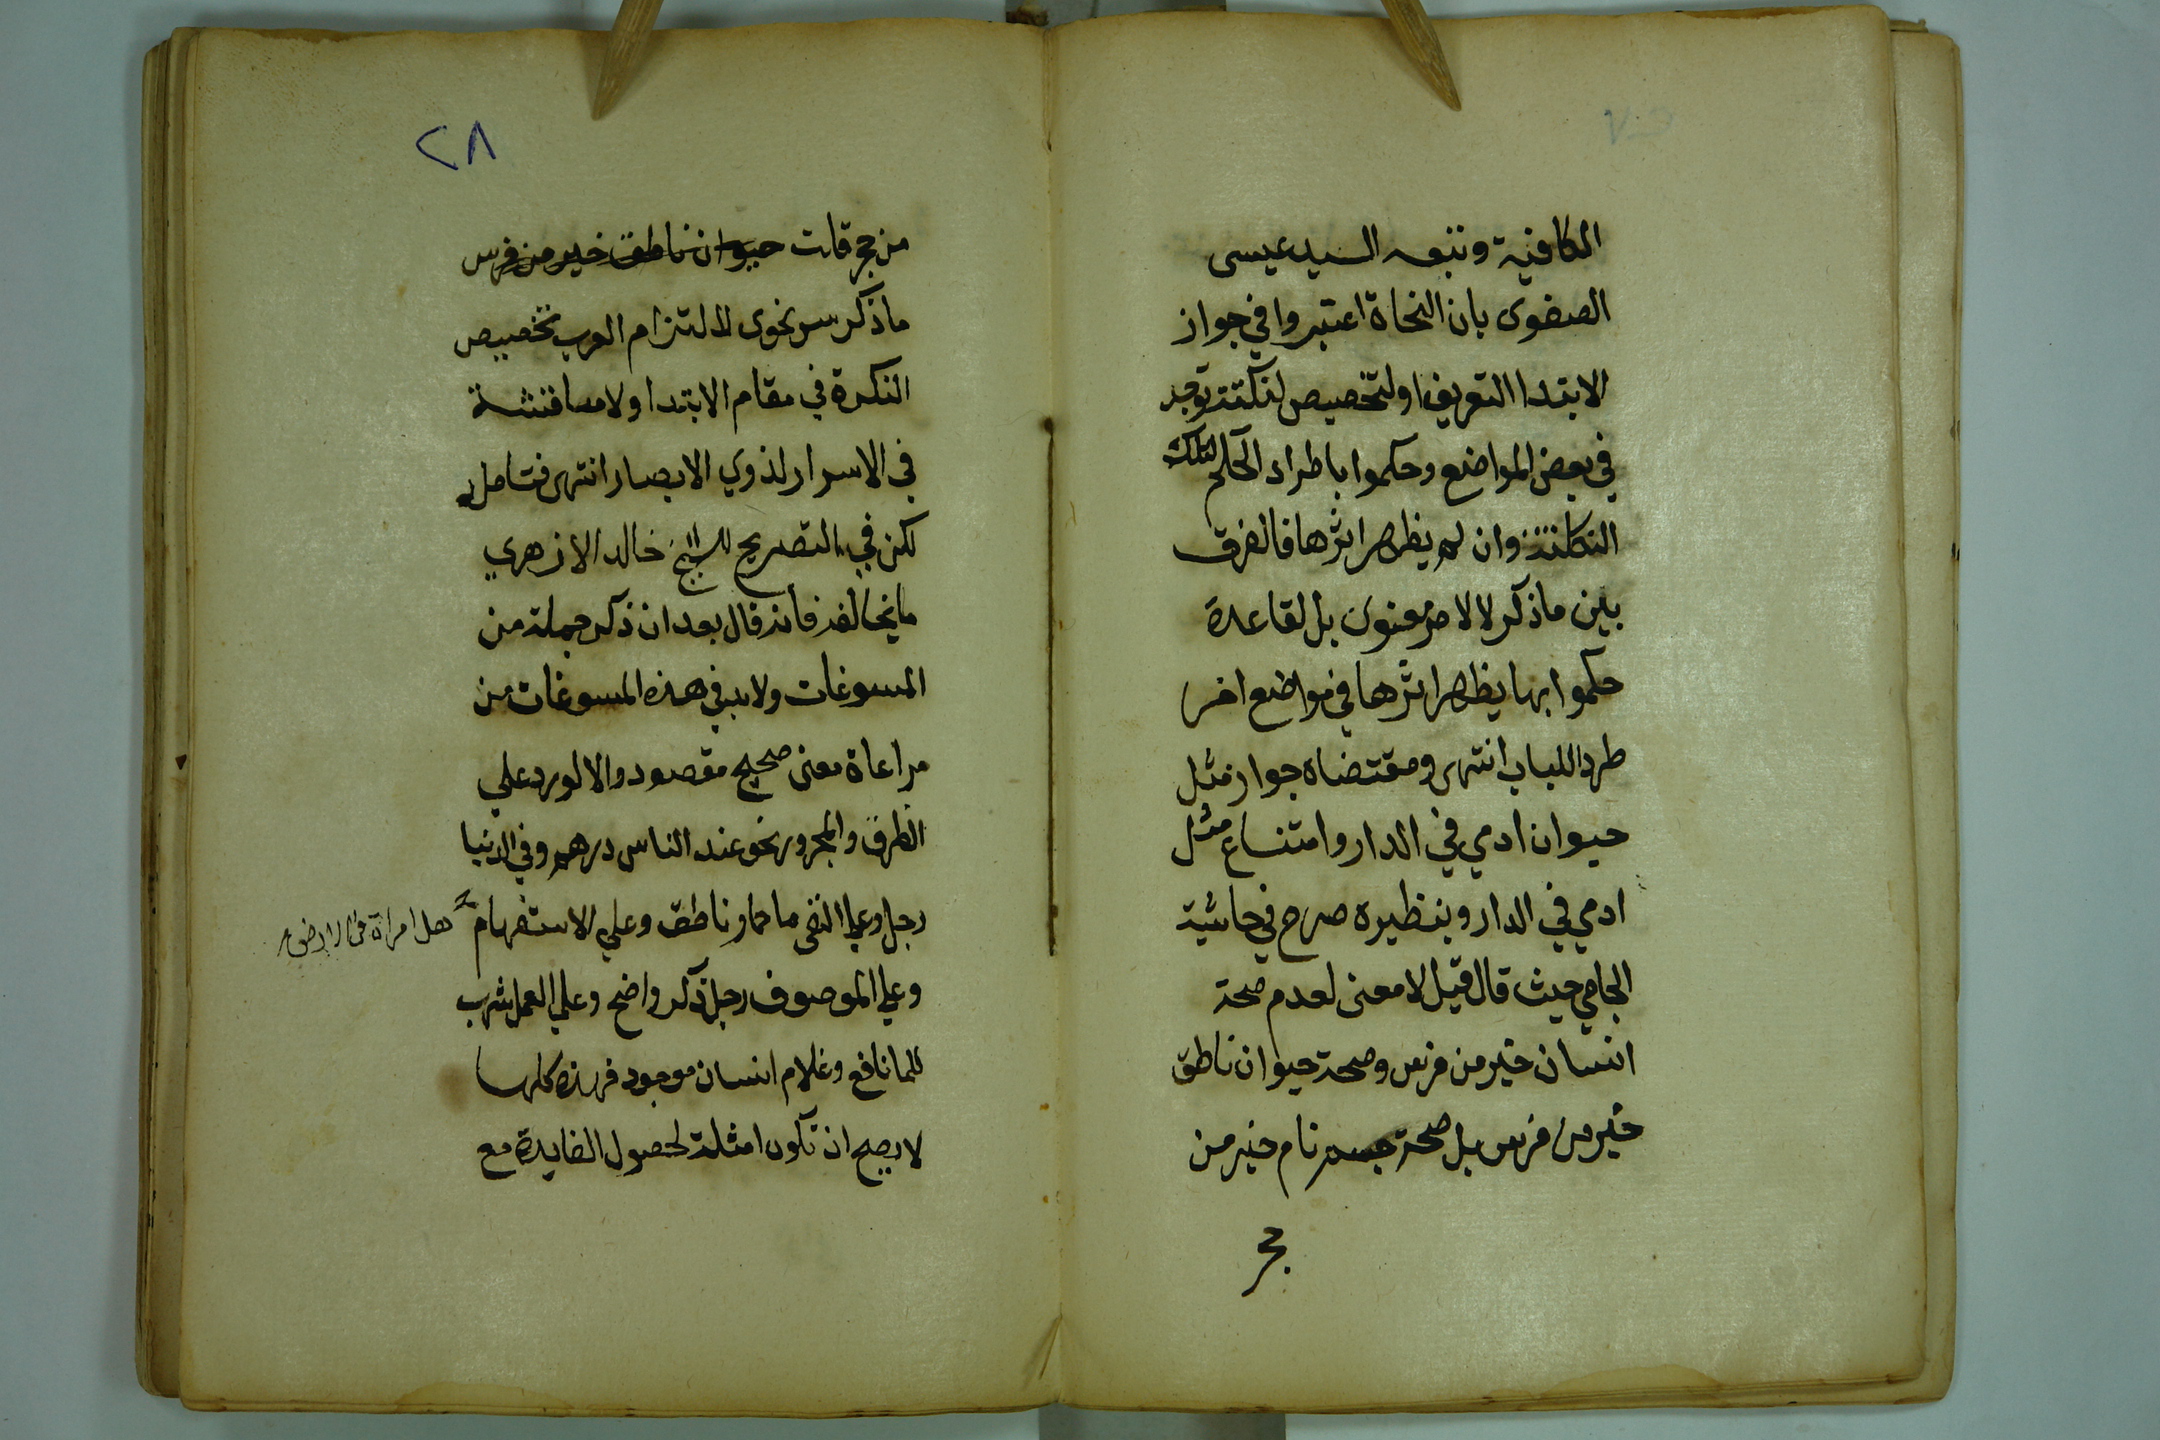 الكافية وتبعه السيد عيسى
الصفوى بان النحاة اعتبروا في جواز
الابتدا التعريف اولتخصيص لنكتة توجد
في بعض المواضع وحكموا باطراد الحكم لتلك
النكتة وان لم يظهر اثرها فالفرق
بين ما ذكر لا لامر معنوى بل لقاعدة
حكموا بها يظهر اثرها في مواضع اخر
طردا للباب انتهى ومقتضاه جواز مثل
حيوان ادمي في الدار وامتناع مثل
ادمي في الدار وبنظيره صرح في حاشية
الجامي حيث قال قيل لا معنى لعدم صحة
انسان خير من فرس وصحة حيوان ناطق
خير من فرس بل صحة جسم نام خير من
حجر
٢٨
من حجر قلت حيوان ناطق خير من فرس
ما ذكر سر نحوى لالتزام العرب تخصيص
النكرة في مقام الابتدا ولا مناقشة
في الاسرار لذوي الابصار انتهى فتامل
لكن في التصريح للشيخ خالد الازهري
ما يخالفه فانه قال بعد ان ذكر جملة من
المسوغات ولابد في هذه المسوغات من
مراعاة معنى صحيح مقصود والا لورد علي
الظرف والمجرور نحو عند الناس درهم وفي الدنيا
رجل وعلي النفى ما حمار ناطق وعلي الاستفهام
هل امراة في الارض
وعلي الموصوف رجل ذكر واضح وعلي العمل شرب
للما نافع وغلام انسان موجود فهذه كلها
لا يصح ان تكون امثلة لحصول الفايدة مع